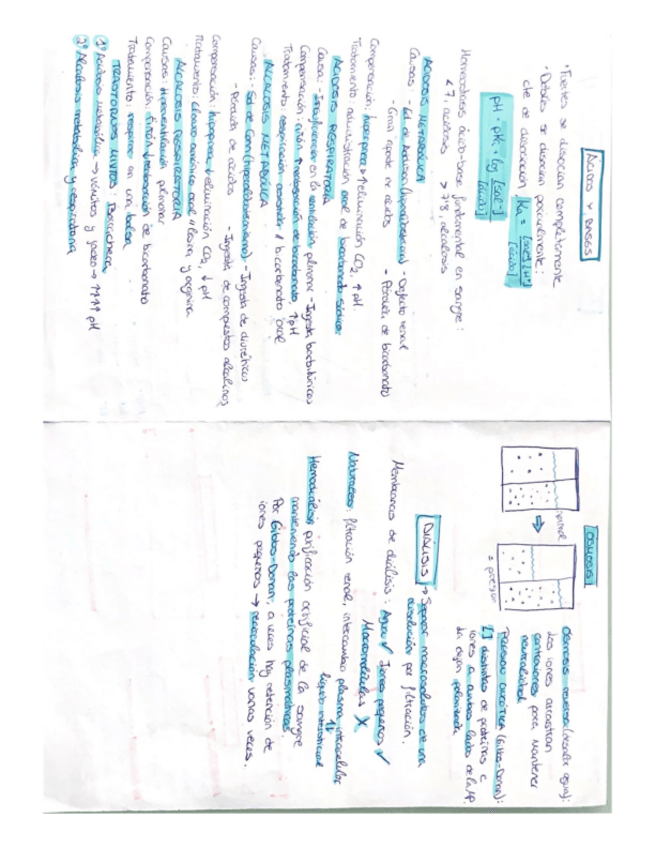 ÁCIDOS Y BASES
· Fuertes se disocian completamente
· Débiles se disocian parcialmente:
cte de disociación Ka = [base][H⁺] / [ácido]
pH = pKa + log [sal⁻] / [ácido]
Homeostasis ácido-base fundamental en sangre:
< 7, acidosis > 7'8, alcalosis
ACIDOSIS METABÓLICA
Causas: - Sd de Addison - Defecto renal
- Gran aporte de ácidos - Pérdida de bicarbonato
Compensación: eliminación CO₂, ↑ pH
Tratamiento: administración oral de bicarbonato sódico
ACIDOSIS RESPIRATORIA
Causa: - Interferencia en la ventilación pulmonar - Ingesta barbitúricos
Compensación: riñón ↑ reabsorción de bicarbonato, ↑pH
Tratamiento: respiración / bicarbonato oral
ALCALOSIS METABÓLICA
Causas: - Sd de Conn (hiperaldosteronismo) - Ingesta de diuréticos
- Pérdida de ácidos - Ingesta de compuestos alcalinos
Compensación: ↓ eliminación CO₂, ↓ pH
Tratamiento: cloruro amónico oral, lisina y arginina
ALCALOSIS RESPIRATORIA
Causas: Hiperventilación pulmonar
Compensación: riñón ↓ reabsorción de bicarbonato
Tratamiento: respirar en una bolsa
TRASTORNOS MIXTOS: Borrachera
1º Acidosis metabólica → vómitos y → ↑↑↑ pH
2º Alcalosis metabólica y respiratoria
OSMOSIS
Ósmosis reversa (desalar agua):
Los iones arrastran
contraiones para mantener
neutralidad
(Gibbs-Donan):
[ ] distintas de proteínas e
iones a ambos lados de la MP.
± presión
DIÁLISIS → Separar macrosolutos de una
disolución por filtración.
Membranas de diálisis: Agua ✓ Iones pequeños ✓
Macromoléculas X
Naturaleza: filtración renal, intercambio plasma, intracelular
líquido intersticial
Hemodiálisis: purificación artificial de la sangre
manteniendo las proteínas plasmáticas.
Por Gibbs-Donan, a veces hay retención de
iones pequeños → varias veces.